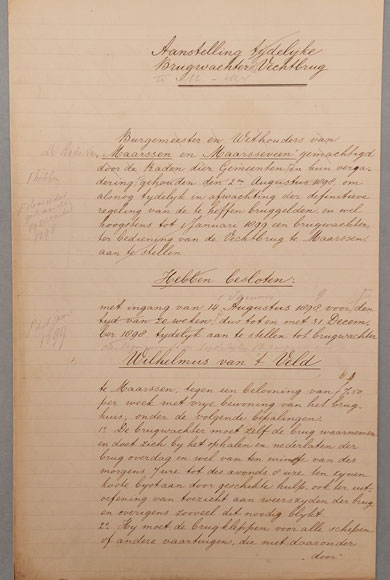 Aanstelling tydelyke
Brugwachter Vechtbrug
Burgemeester en Wethouders van
Maarssen en Maarsseveen gemachtigd
door de Raden dier Gemeenten in hun verga-
dering gehouden den 2en Augustus 1898 om
alsnog tydelyk in afwachting der definitieve
regeling van de te heffen bruggelden en wel
hoogstens tot 1 Januari 1899 een brugwachter
ter bediening van de Vechtbrug te Maarssen
aan te stellen
Hebben besloten:
met ingang van 14 Augustus 1898 voor den
tyd van 20 weken dus tot en met 31 Decem-
ber 1898 tydelyk aan te stellen tot brugwachter
Wilhelmus van 't Veld
te Maarssen, tegen een belooning van f 7,50
per week met vrye bewoning van het brug-
huis, onder de volgende bepalingen:
1o De brugwachter moet zelf de brug waarnemen
en doet zich by het ophalen en nederlaten der
brug overdag en wel van des
morgens 7 ure tot des avonds 8 ure ten zynen
koste bystaan door geschikte hulp, ook ter uit-
oefening van toezicht aan weerszyden der brug
en overigens zooveel dit noodig blykt.
2o Hy moet de brugkleppen voor alle schepen
of andere vaartuigen, die niet daaronder
door
1899